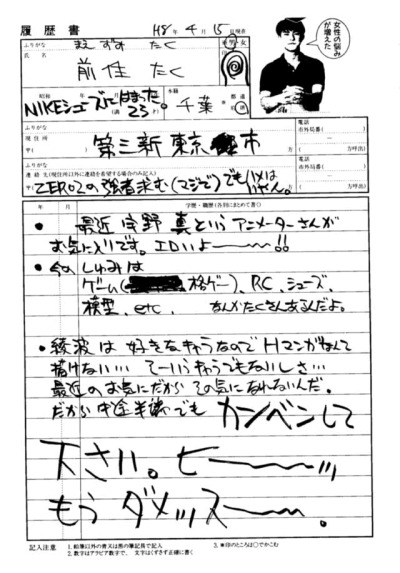 履歴書
H8年4月15日現在
女性の悩みが増えた
ふりがな まえずみ たく
氏名
前住 たく
男・女
昭和 年 月
NIKEシューズにはまった。
(満 23才)
本籍 千葉 都道府県
ふりがな
現住所
〒( ) 第三新東京市 方
電話
市外局番( )
方呼出
ふりがな
連絡先(現住所以外に連絡を希望する場合のみ記入)
〒( ) ZERO2の強者求む(マジで)でもハメはいやん。 方
電話
市外局番( )
方呼出
年 月 学歴・職歴(各別にまとめて書く)
● 最近 宇野 真というアニメーターさんが
お気に入りです。エロいよー!!
● 今のしゅみは
ゲーム( 格ゲー)、RC、シューズ
模型、etc. なんかたくさんあるんだよ。
● 綾波は好きなキャラなのでHマンガなんて
描けない… そーいうキャラでもないしさ…
最近のお気にだからその気になれないんだ。
だから中途半端でもカンベンして
下さい。ヒーッ
もうダメッスー。
記入注意 1.鉛筆以外の青又は黒の筆記具で記入 3.※印のところは○でかこむ
2.数字はアラビア数字で、文字はくずさず正確に書く